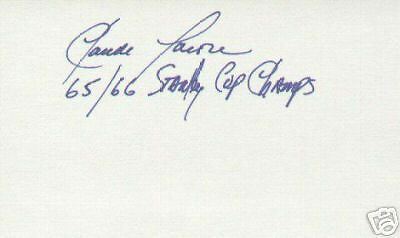 Claude Larose
65/66 Stanley Cup Champs
ebay